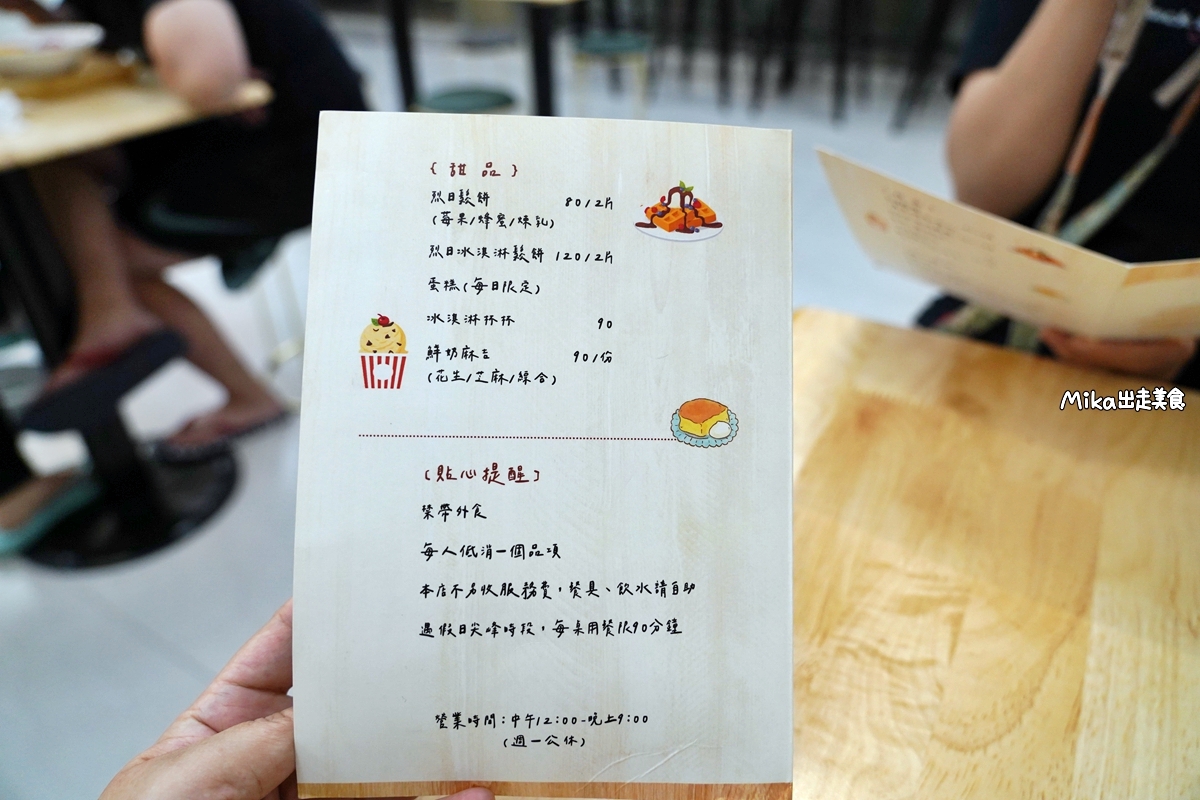 { 甜 品 }
烈日鬆餅 80/2片
(莓果/蜂蜜/煉乳)
烈日冰淇淋鬆餅 120/2片
蛋糕(每日限定)
冰淇淋杯杯 90
鮮奶麻吉 90/份
(花生/芝麻/綜合)
{貼心提醒}
禁帶外食
每人低消一個品項
本店不另收服務費,餐具、飲水請自助
遇假日尖峰時段,每桌用餐限90分鐘
營業時間:中午12:00-晚上9:00
(週一公休)
Mika出走美食